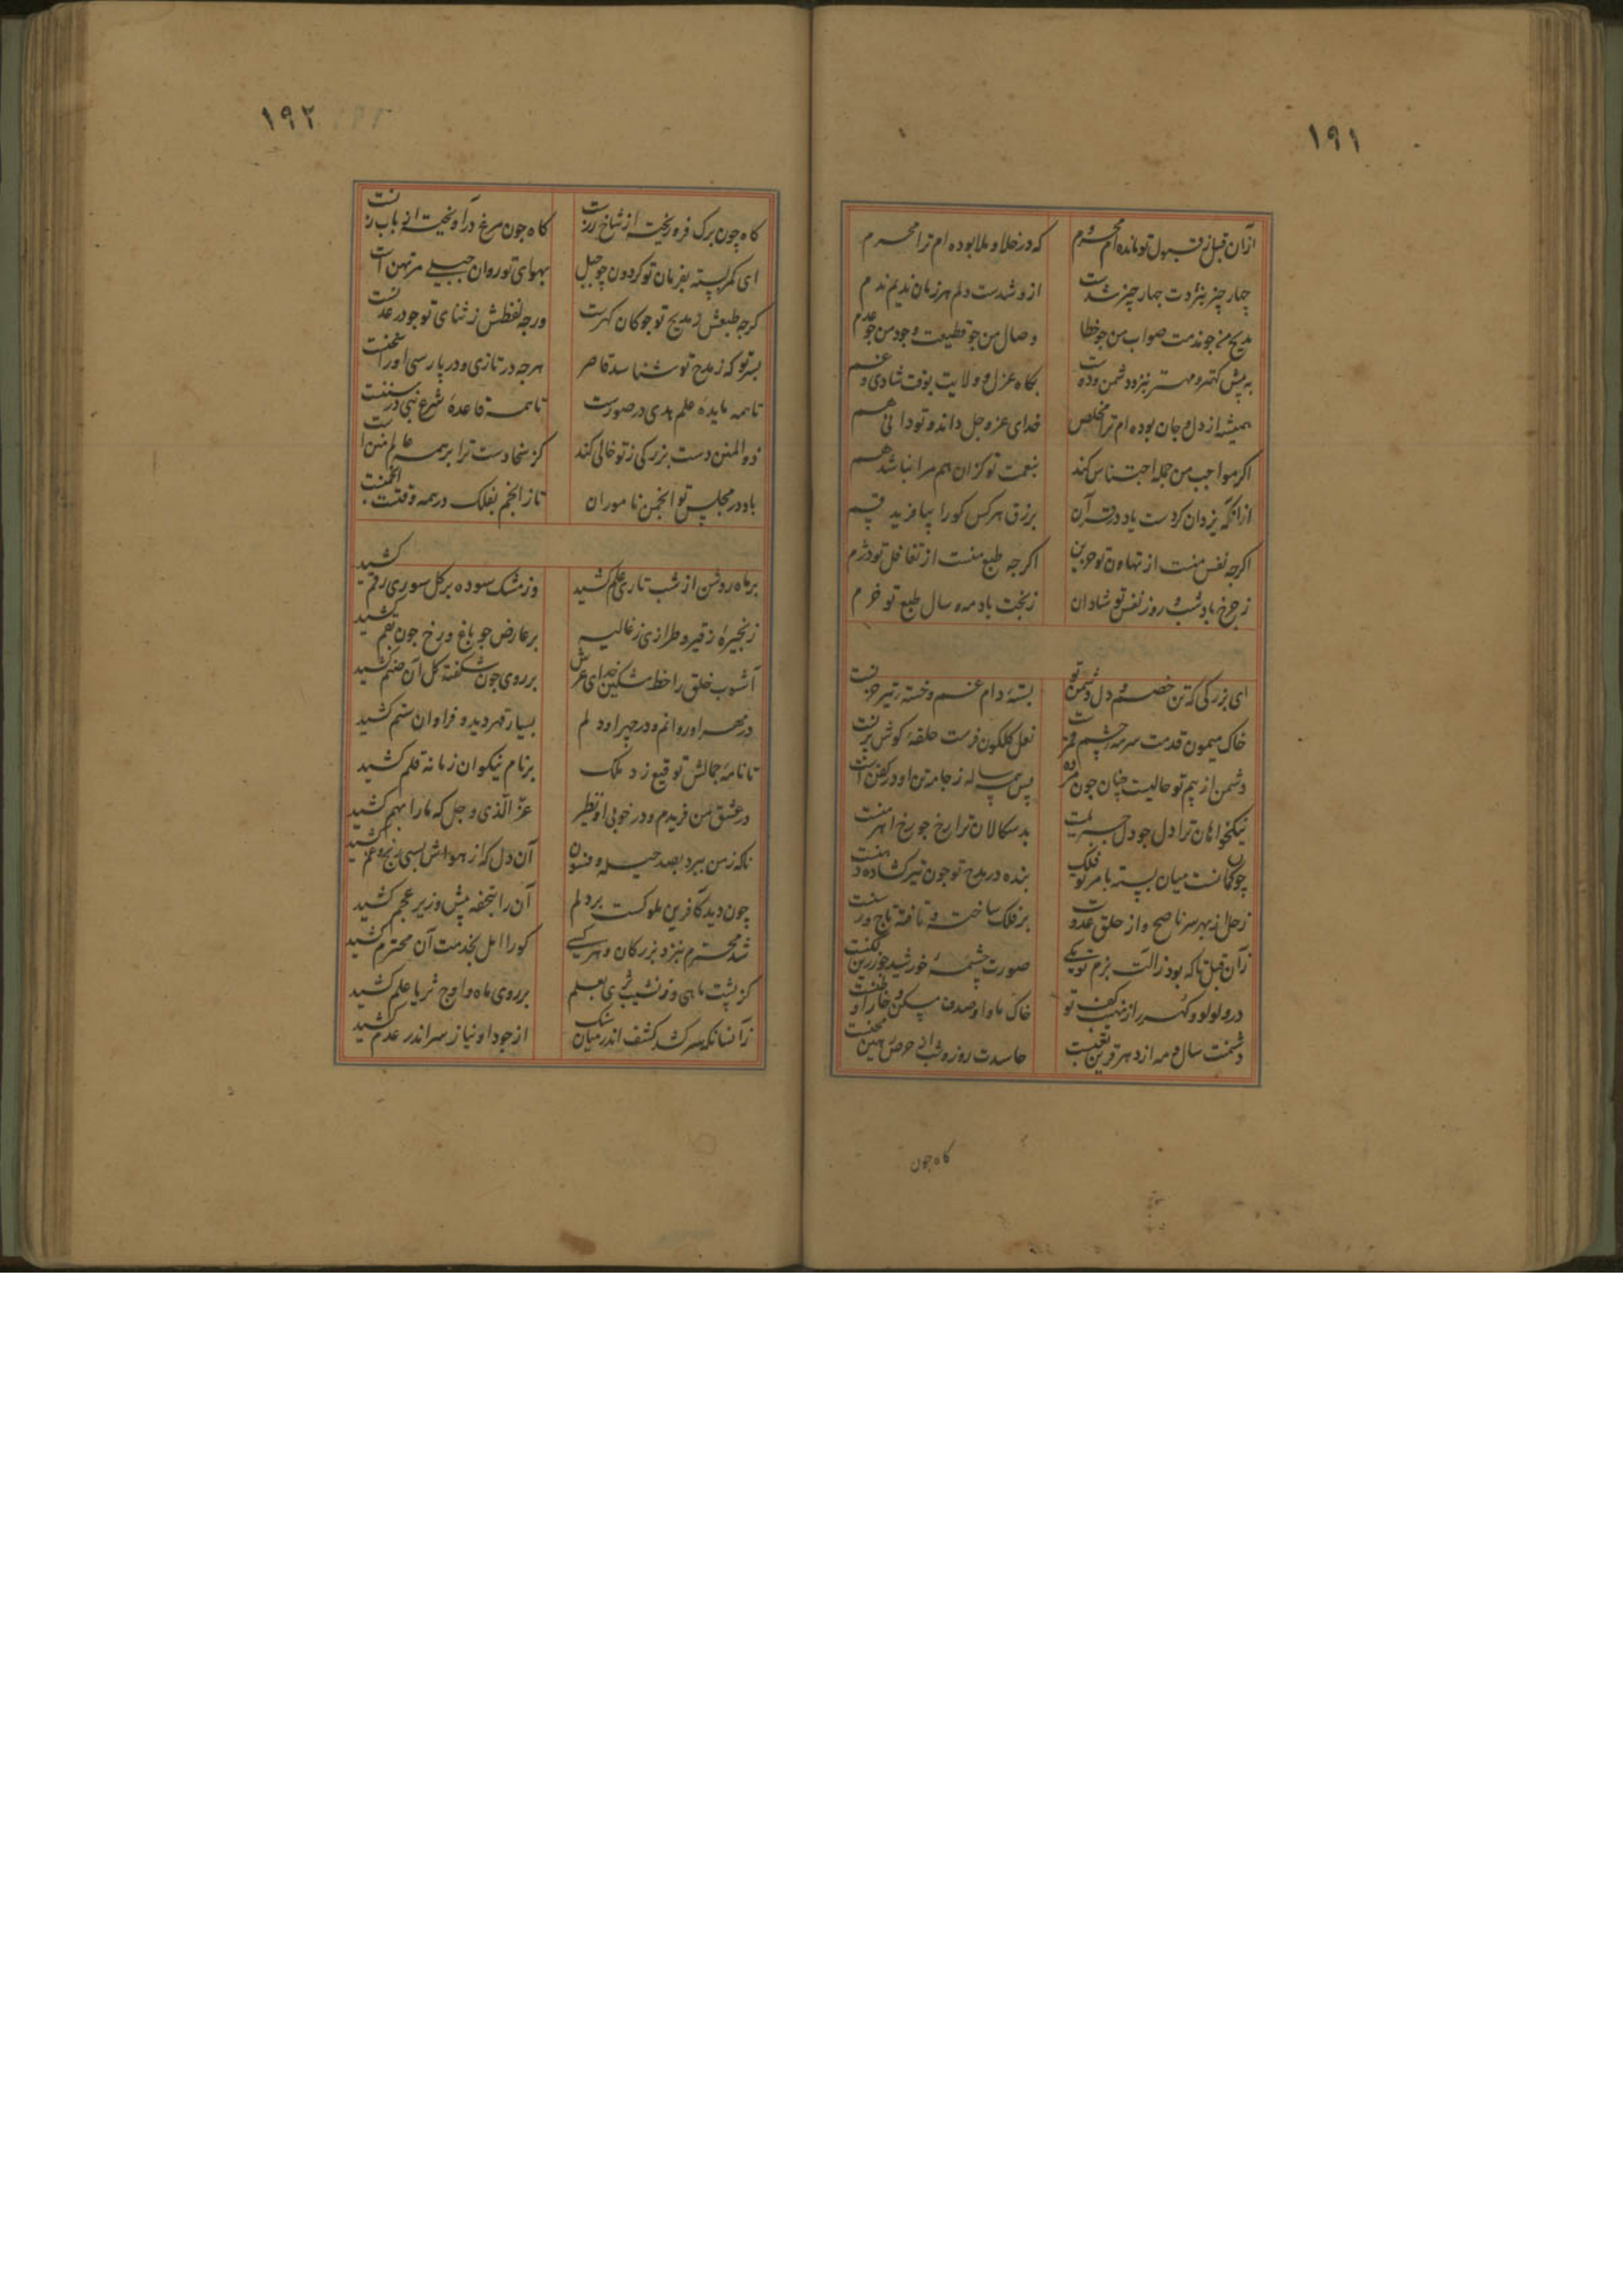 ۱۹۱
ازان قبل ز قبول تو مانده‌ام محروم که در خلا و ملا بوده‌ام ترا محرم
چهار چیز بنزدت چهار چیز شدست ازو شدست دلم هر زمان ندیم ندم
مدیح من جو مذمت صواب من جو خطا وصال من جو قطیعت وجود من جو عدم
به پیش کهتر و مهتر بنزد دشمن و دوست بکاه عزل و ولایت بوقت شادی و غم
همیشه از دل و جان بوده‌ام ترا مخلص خدای عز و جل داند و تو دانی هم
اکر مواجب من جمله اجتناس کند بنعمت تو کزان هم مرا نباشد هم
ازانکه یزدان کردست یاد در قرآن برزق هر کس کو را بیافرید قسم
اکرجه نفس منست از تهاون تو حزین اکرجه طبع منست از تغافل تو دژم
ز جرخ باد شب و روز نفس تو شادان ز بخت باد مه و سال طبع تو خرم
ای بزرکی که تن خصم و دل دشمن تو بستهٔ دام غم و خستهٔ تیر حزنست
خاک میمون قدمت سرمهٔ چشم قمرست نعل کلکون فرست حلقهٔ کوش پرنست
دشمن از بیم تو حالیست چنان جون مرده پس همه ساله ز جامه تن او در کفنست
نیکخواهان ترا دل جو دل جبریلست بدسکالان ترا رخ جو رخ اهرمنست
چون کمانست میان بسته بامر تو فلک بنده در مدح تو جون تیر کشاده دهنست
زحل از بهر سر ناصح و از حلق عدوت بر فلک ساخته و تافته تاج و رسنست
زان قبل تا که بود ز آلت بزم تو یکی صورت چشمهٔ خورشید جو زرین لکنست
در و لولو و کهر را ز نهیب کف تو خاک ماوا و صدف مسکن و خارا وطنست
دشمنت سال و مه از دهر قرین تعبست حاسدت روز و شب از حرص رهین محنست
کاه جون
۱۹۲
کاه چون برک فرو ریخته از شاخ رزست کاه جون مرغ درآویخته از بابزنست
ای کمر بسته بفرمان تو کردون چو جبل بهوای تو روان جبلی مرتهنست
کرجه طبعش ز مدیح تو جو کان کهرست ورجه لفظش ز ثنای تو جو در عدنست
بسر تو که ز مدح تو شناسد قاصر هرجه در تازی و در پارسی او را سخنست
تا همه مایدهٔ علم هدی در صورست تا همه قاعدهٔ شرع نبی در سننست
ذوالمنن دست بزرکی ز تو خالی نکند کز سخا دست ترا بر همه عالم مننست
باد در مجلس تو انجمن ناموران تا ز انجم بفلک در همه وقت انجمنست
بر ماه روشن از شب تاری علم کشید وز مشک سوده بر کل سوری رقم کشید
زنجیرهٔ ز قیر و طرازی ز غالیه بر عارض جو باغ و رخ جون بقم کشید
آشوب خلق را خط مشکین خدای عرش بر روی جون شکفته کل آن صنم کشید
در مهر او روانم و در جهر او دلم بسیار قهر دید و فراوان ستم کشید
تا نامهٔ جمالش توقیع زد ملک بر نام نیکوان زمانه قلم کشید
در عشق من فریدم و در خوبی او نظیر عز الذی و جل که ما را بهم کشید
ناکه ز من ببرد بصد حیله و فسون آن دل که از هواش بسی رنج و غم کشید
چون دید کافرین ملوکست بر دلم آن را بتحفه پیش وزیر عجم کشید
شد محترم بنزد بزرکان و هر کسی کو را امل بخدمت آن محترم کشید
کز پشت ماهی و ز نشیب ثری بعلم بر روی ماه و اوج ثریا علم کشید
زانسانکه سر کشد کشف اندر میان سنک از جود او نیاز سر اندر عدم کشید